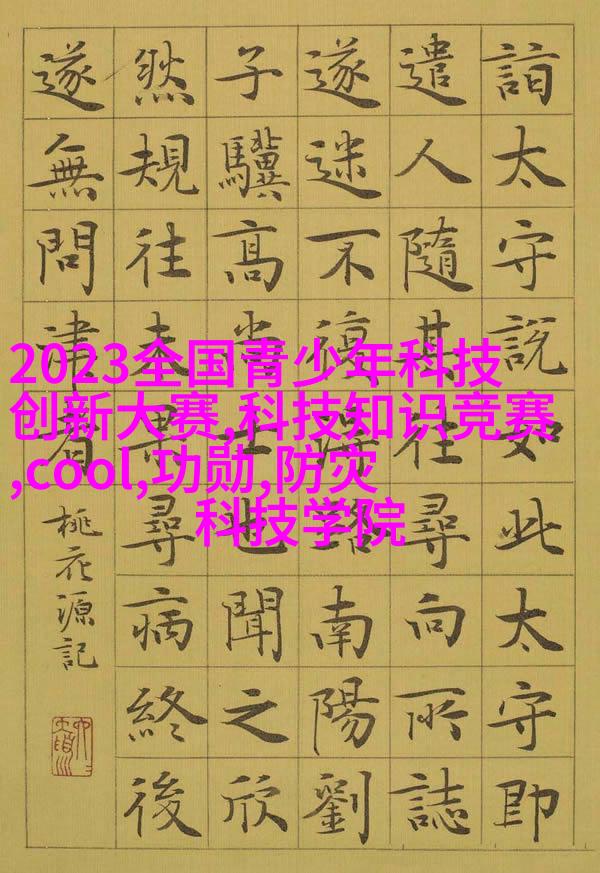 2023全国青少年科技
创新大赛,科技知识竞赛
,cool,功勋,防灾
科技学院
詣太守說如此太守即
遣人隨其往尋向所誌
遂迷不復得路南陽劉
子驥高尚士也聞之欣
然規往未果尋病終後
遂無問津者
桃花源記